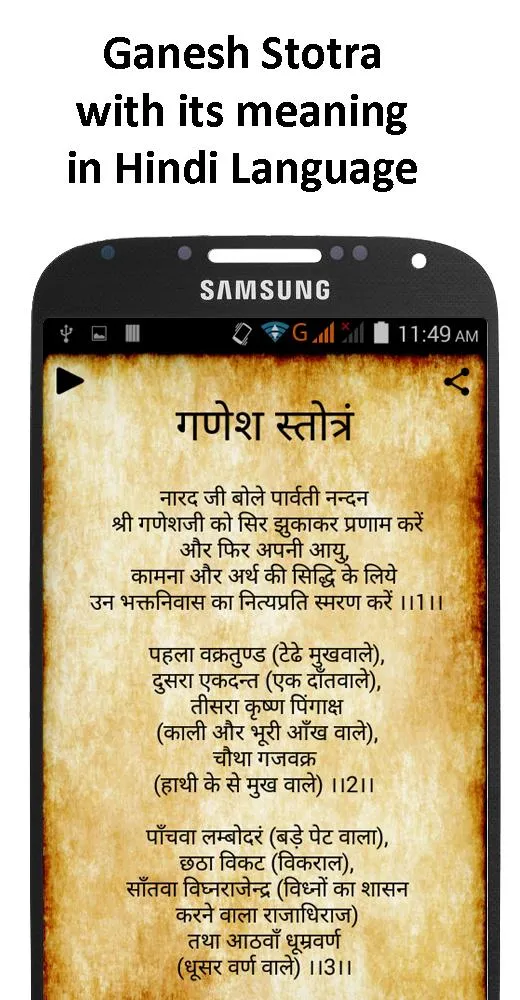 Ganesh Stotra
with its meaning
in Hindi Language
SAMSUNG
G 11:49 AM
गणेश स्तोत्रं
नारद जी बोले पार्वती नन्दन
श्री गणेशजी को सिर झुकाकर प्रणाम करें
और फिर अपनी आयु,
कामना और अर्थ की सिद्धि के लिये
उन भक्तनिवास का नित्यप्रति स्मरण करें ।।1।।
पहला वक्रतुण्ड (टेढे मुखवाले),
दुसरा एकदन्त (एक दाँतवाले),
तीसरा कृष्ण पिंगाक्ष
(काली और भूरी आँख वाले),
चौथा गजवक्र
(हाथी के से मुख वाले) ।।2।।
पाँचवा लम्बोदरं (बड़े पेट वाला),
छठा विकट (विकराल),
साँतवा विघ्नराजेन्द्र (विध्नों का शासन
करने वाला राजाधिराज)
तथा आठवाँ धूम्रवर्ण
(धूसर वर्ण वाले) ।।3।।